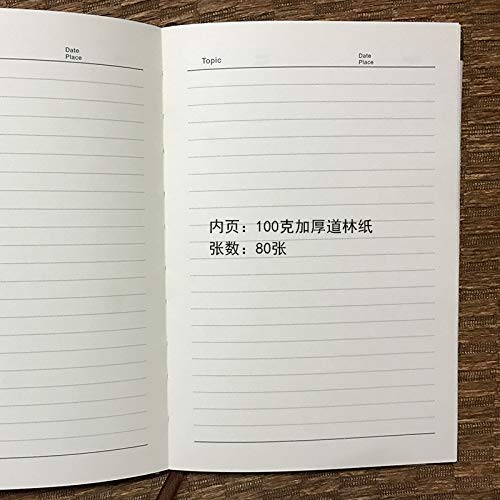 Date
Place
Topic
Date
Place
内页：100克加厚道林纸
张数：80张